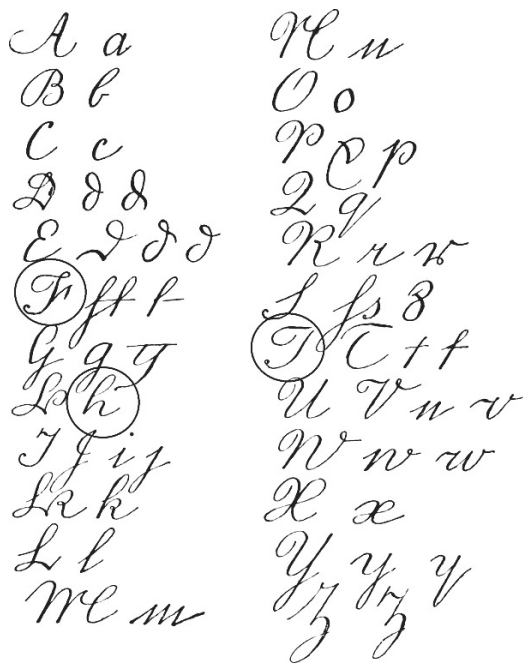 A a
B b
C c
D d d
E d d d
F f f f
G g g
H h
I J i j
K k
L l
M m
N n
O o
P P p
Q q
R r r
S s s s
T T t t
U V u v
W w w
X x
Y y y
Z z